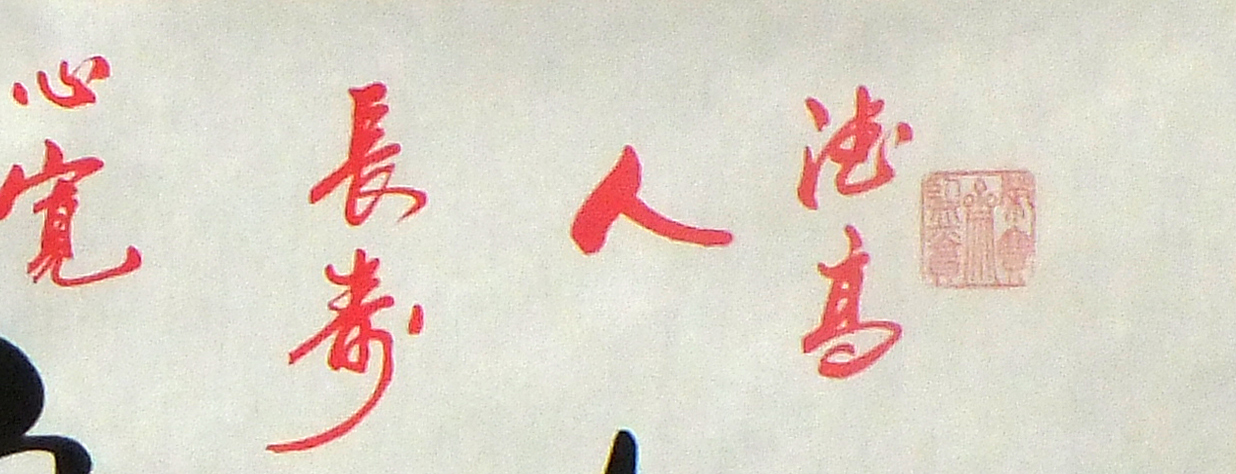 德高
人
長寿
心寬